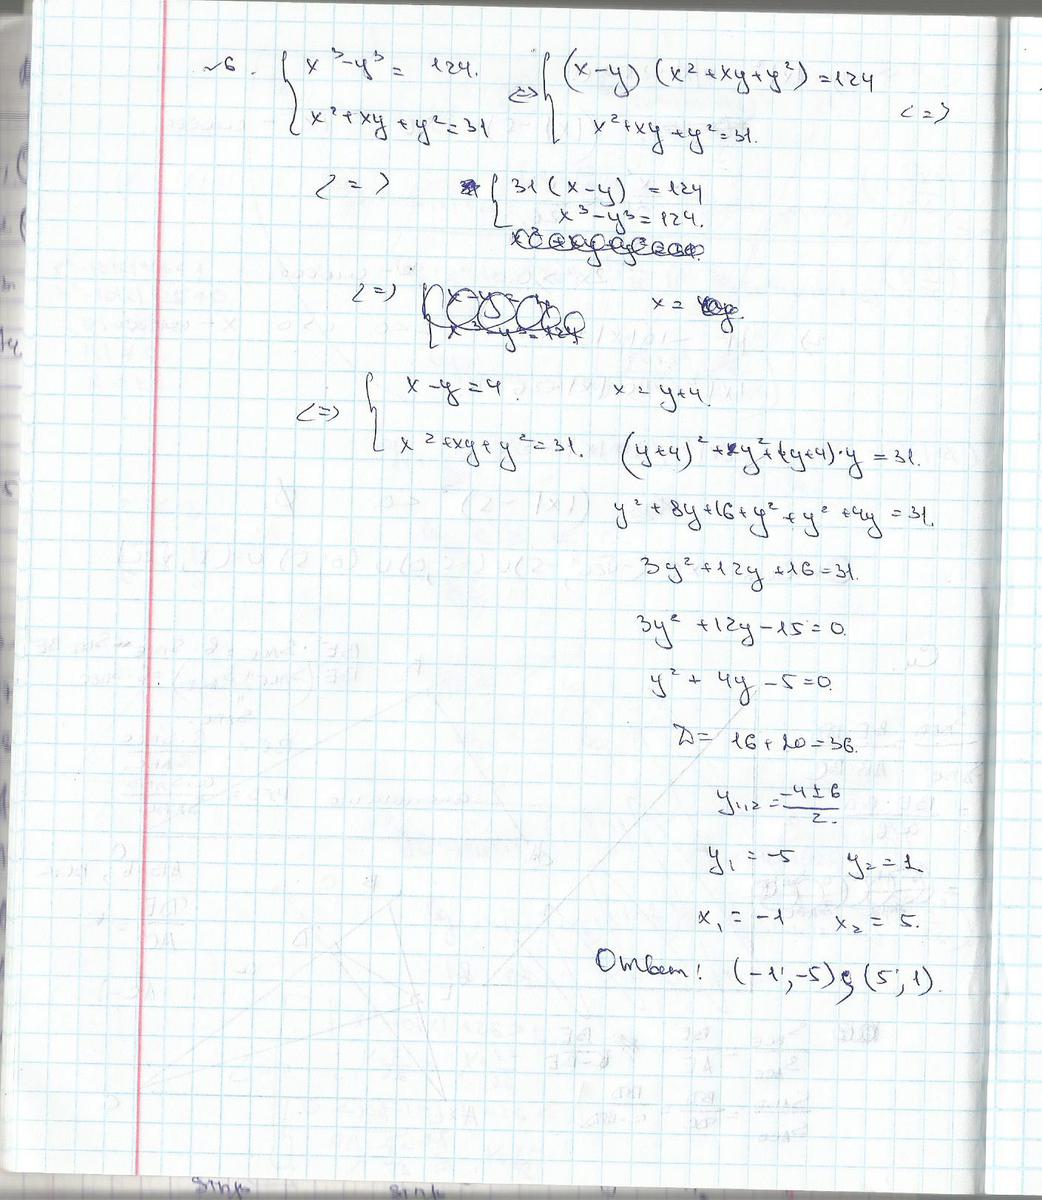 №6. { x³-y³= 124. <=> { (x-y)(x²+xy+y²)=124
x²+xy+y²=31 x²+xy+y²=31. <=>
<=> { 31(x-y) =124
x³-y³=124.
<=> x =
<=> { x-y=4. x=y+4.
x²+xy+y²=31. (y+4)²+y²+(y+4)·y=31.
y²+8y+16+y²+y²+4y=31.
3y²+12y+16=31.
3y²+12y-15=0.
y²+4y-5=0.
D= 16+20=36.
y₁,₂=(-4±6)/2.
y₁=-5 y₂=1
x₁=-1 x₂=5.
Ответ: (-1;-5); (5;1).